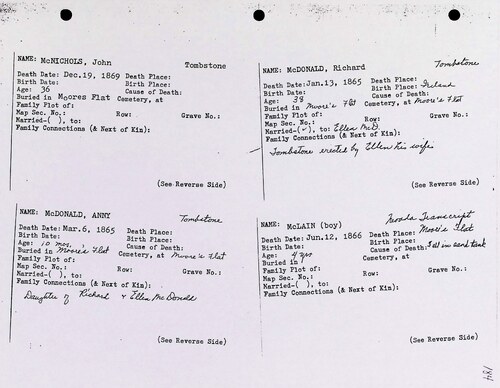 NAME: McNICHOLS, John Tombstone
Death Date: Dec.19, 1869 Death Place:
Birth Date: Birth Place:
Age: 36 Cause of Death:
Buried in Moores Flat Cemetery, at
Family Plot of:
Map Sec. No.: Row: Grave No.:
Married-( ), to:
Family Connections (& Next of Kin):
(See Reverse Side)
NAME: McDONALD, Richard Tombstone
Death Date: Jan.13, 1865 Death Place:
Birth Date: Birth Place: Ireland
Age: 38 Cause of Death:
Buried in Moore's Flat Cemetery, at Moore's Flat
Family Plot of:
Map Sec. No.: Row: Grave No.:
Married-(✓), to: Ellen McD.
Family Connections (& Next of Kin):
Tombstone erected by Ellen his wife
(See Reverse Side)
NAME: McDONALD, ANNY Tombstone
Death Date: Mar.6, 1865 Death Place:
Birth Date: Birth Place:
Age: 10 mos. Cause of Death:
Buried in Moores Flat Cemetery, at Moore's Flat
Family Plot of:
Map Sec. No.: Row: Grave No.:
Married-( ), to:
Family Connections (& Next of Kin):
Daughter of Richard & Ellen McDonald
(See Reverse Side)
NAME: McLAIN (boy) Nevada Transcript
Death Date: Jun.12, 1866 Death Place: Moore's Flat
Birth Date: Birth Place:
Age: 4 yrs Cause of Death: Fell in sand tank
Buried in Cemetery, at
Family Plot of:
Map Sec. No.: Row: Grave No.:
Married-( ), to:
Family Connections (& Next of Kin):
(See Reverse Side)
184